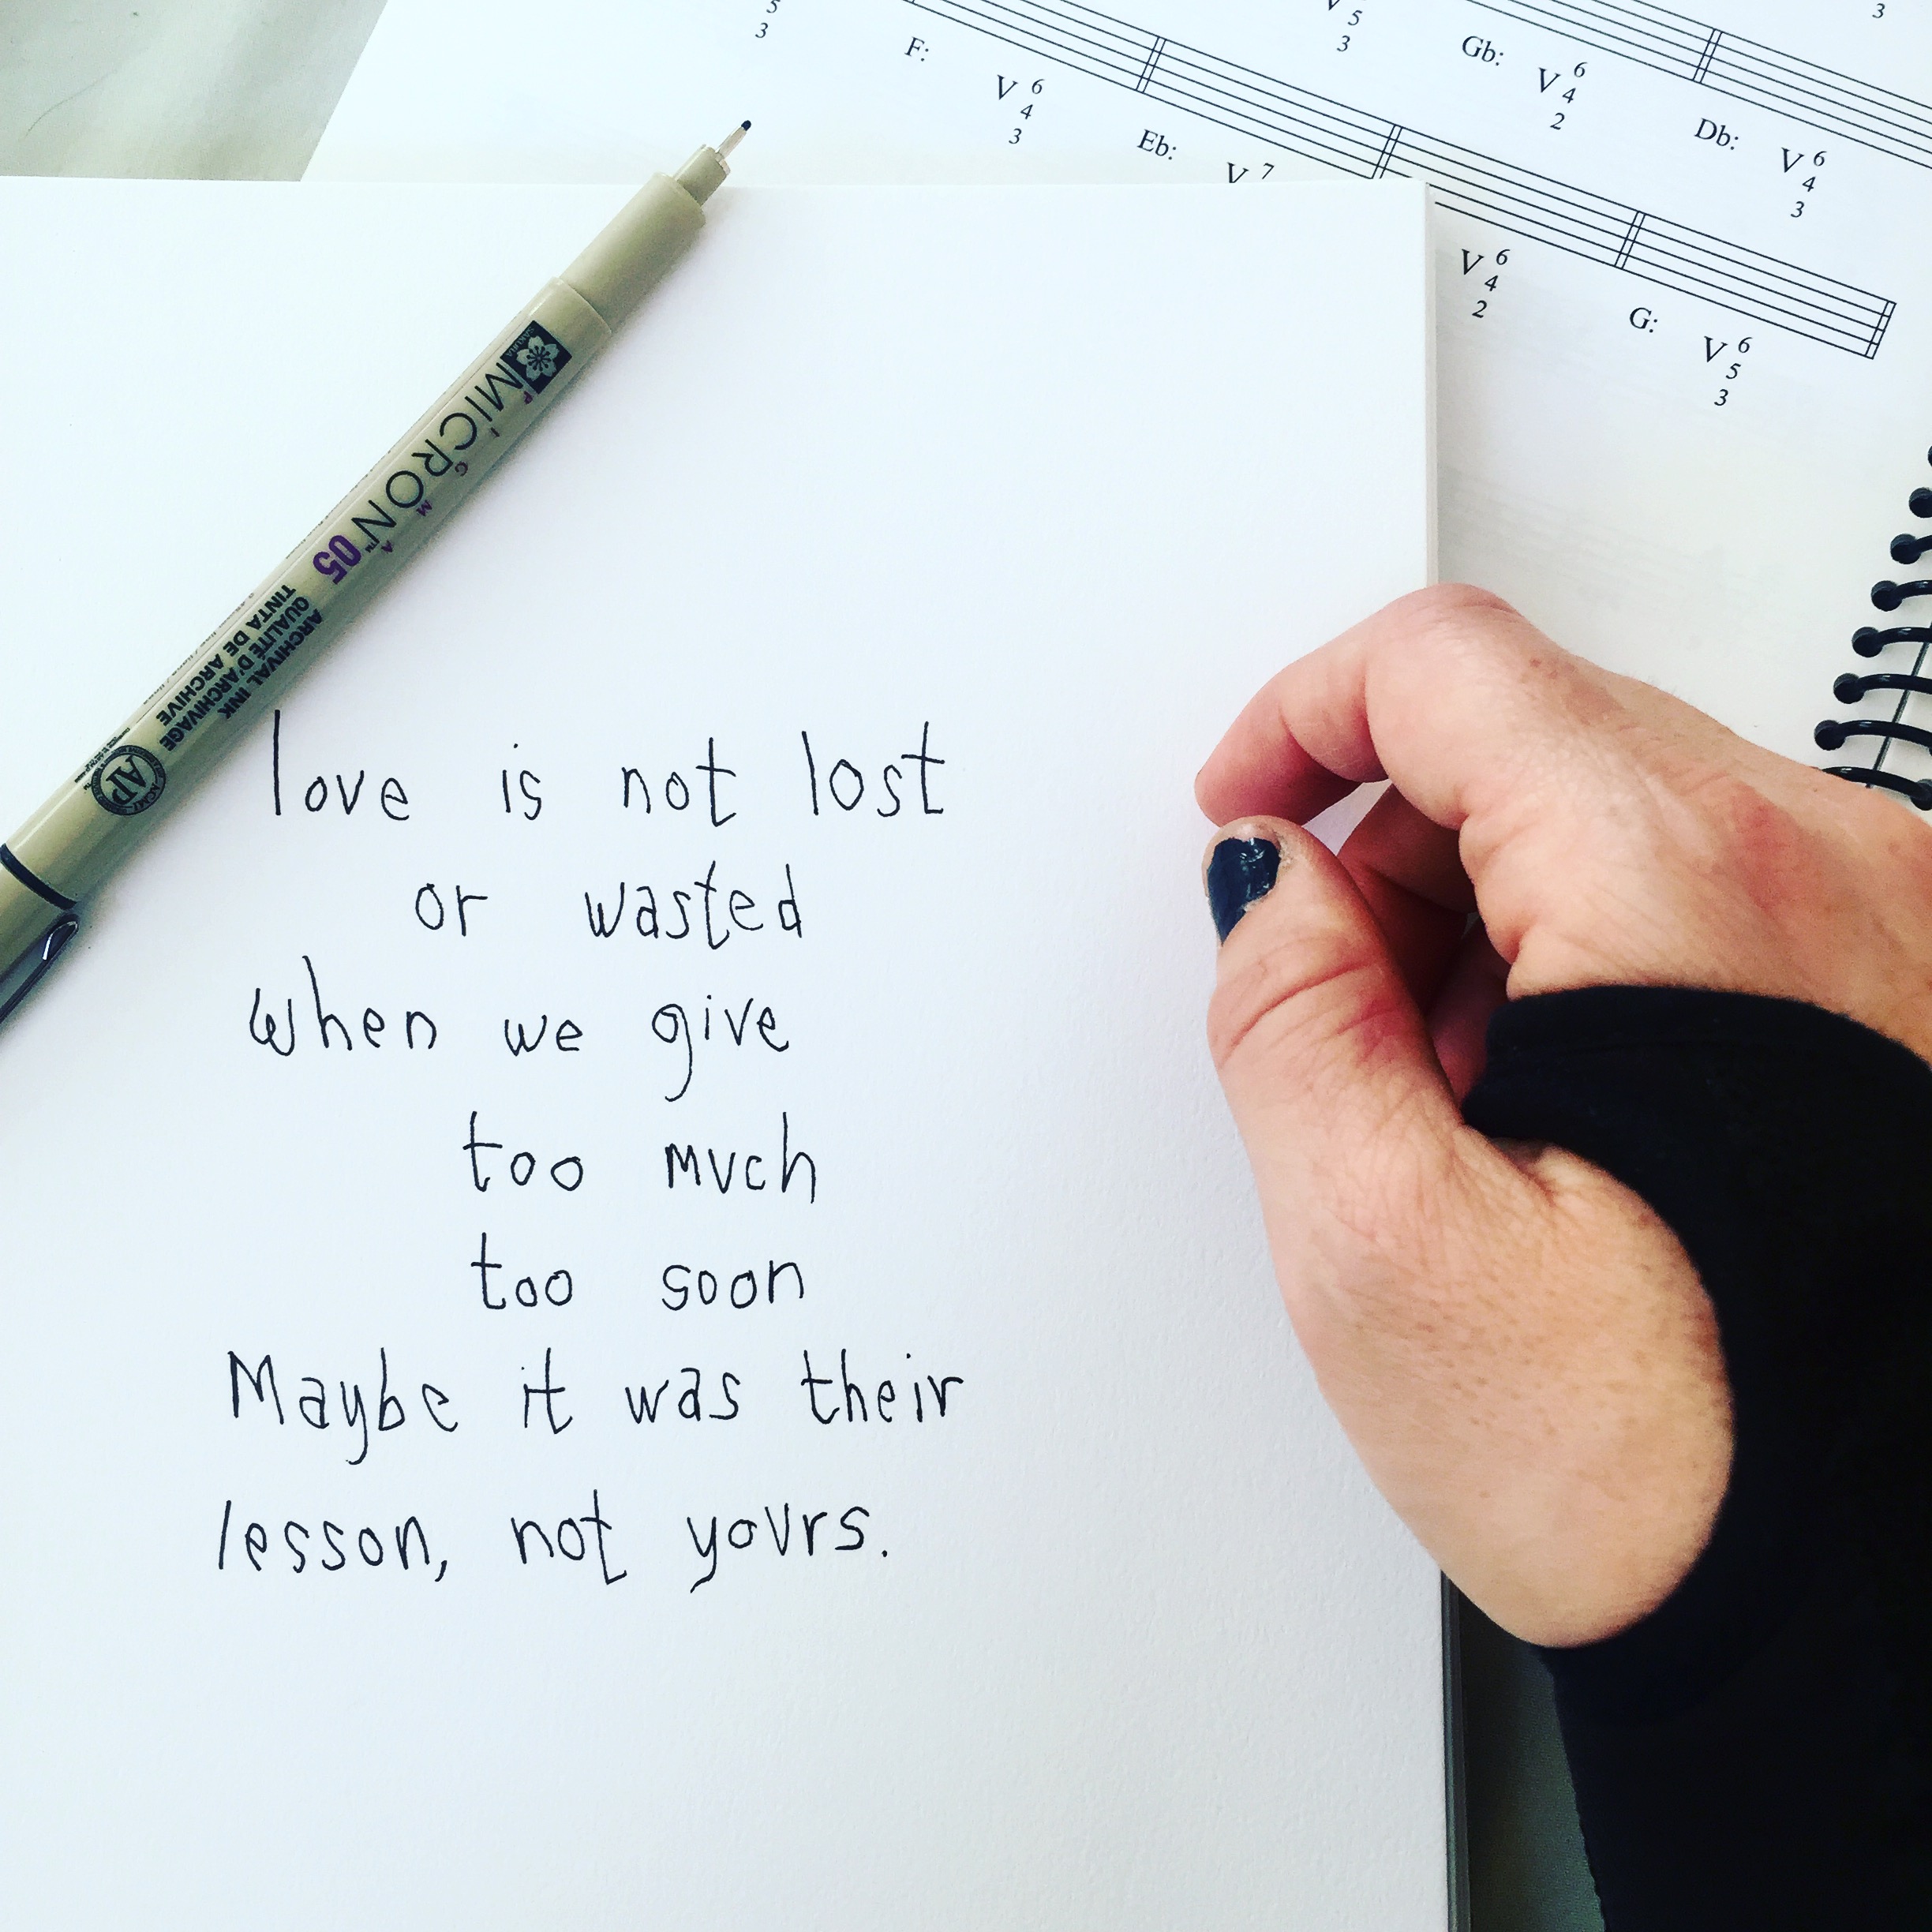 5
3
F:
V 6
4
3
Eb:
V 7
V 5
3
Gb:
V 6
4
2
Db:
V 6
4
3
3
V 6
4
2
G:
V 6
5
3
SAKURA
PIGMA
MICRON™ 05
ARCHIVAL INK
QUALITÉ D'ARCHIVAGE
TINTA DE ARCHIVE
AP
love is not lost
or wasted
when we give
too much
too soon
Maybe it was their
lesson, not yours.